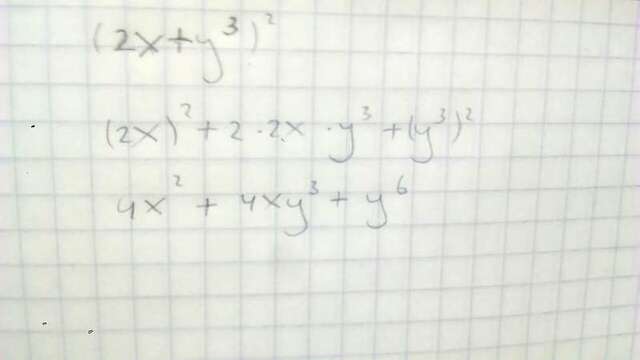 (2x+y³)²
(2x)² + 2·2x·y³ + (y³)²
4x² + 4xy³ + y⁶